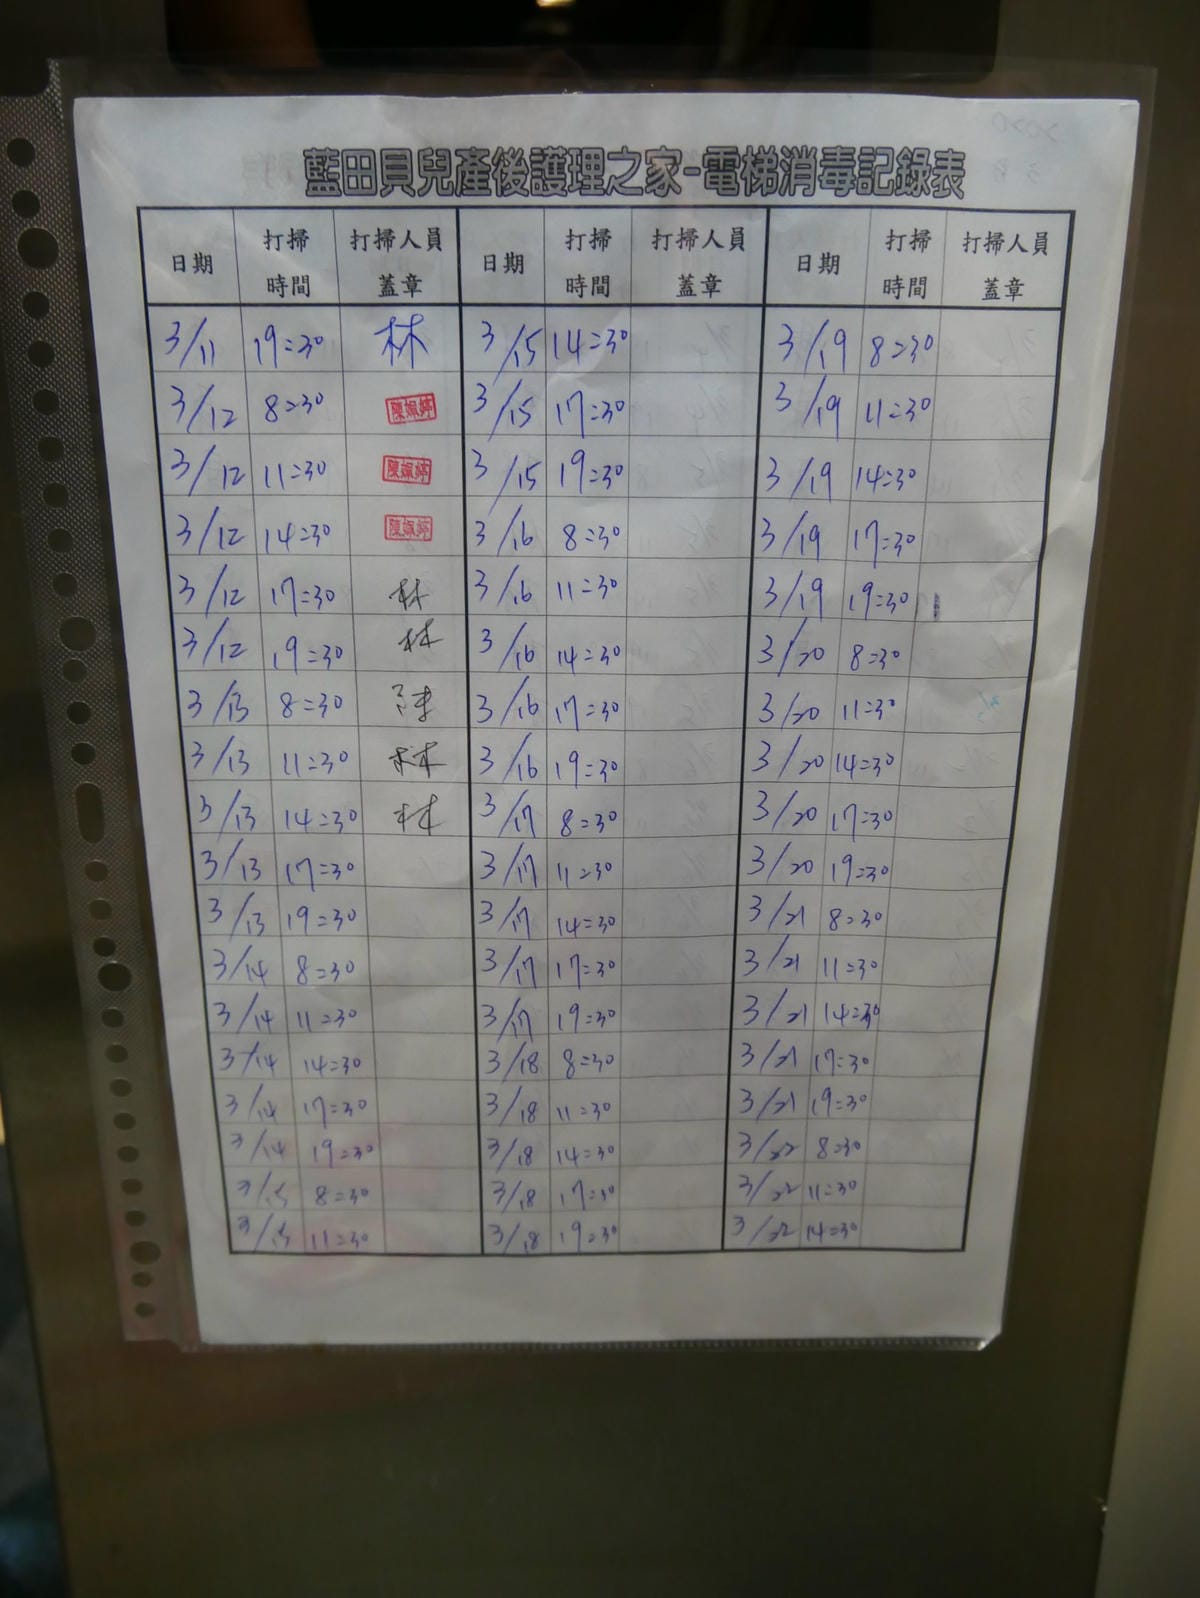 藍田貝兒產後護理之家-電梯消毒記錄表
日期 打掃時間 打掃人員蓋章 日期 打掃時間 打掃人員蓋章 日期 打掃時間 打掃人員蓋章
3/11 19=30 林 3/15 14=30 3/19 8=30
3/12 8=30 陳姵婷 3/15 17=30 3/19 11=30
3/12 11=30 陳姵婷 3/15 19=30 3/19 14=30
3/12 14=30 陳姵婷 3/16 8=30 3/19 17=30
3/12 17=30 林 3/16 11=30 3/19 19=30
3/12 19=30 林 3/16 14=30 3/20 8=30
3/13 8=30 陳 3/16 17=30 3/20 11=30
3/13 11=30 林 3/16 19=30 3/20 14=30
3/13 14=30 林 3/17 8=30 3/20 17=30
3/13 17=30 3/17 11=30 3/20 19=30
3/13 19=30 3/17 14=30 3/21 8=30
3/14 8=30 3/17 17=30 3/21 11=30
3/14 11=30 3/17 19=30 3/21 14=30
3/14 14=30 3/18 8=30 3/21 17=30
3/14 17=30 3/18 11=30 3/21 19=30
3/14 19=30 3/18 14=30 3/22 8=30
3/15 8=30 3/18 17=30 3/22 11=30
3/15 11=30 3/18 19=30 3/22 14=30